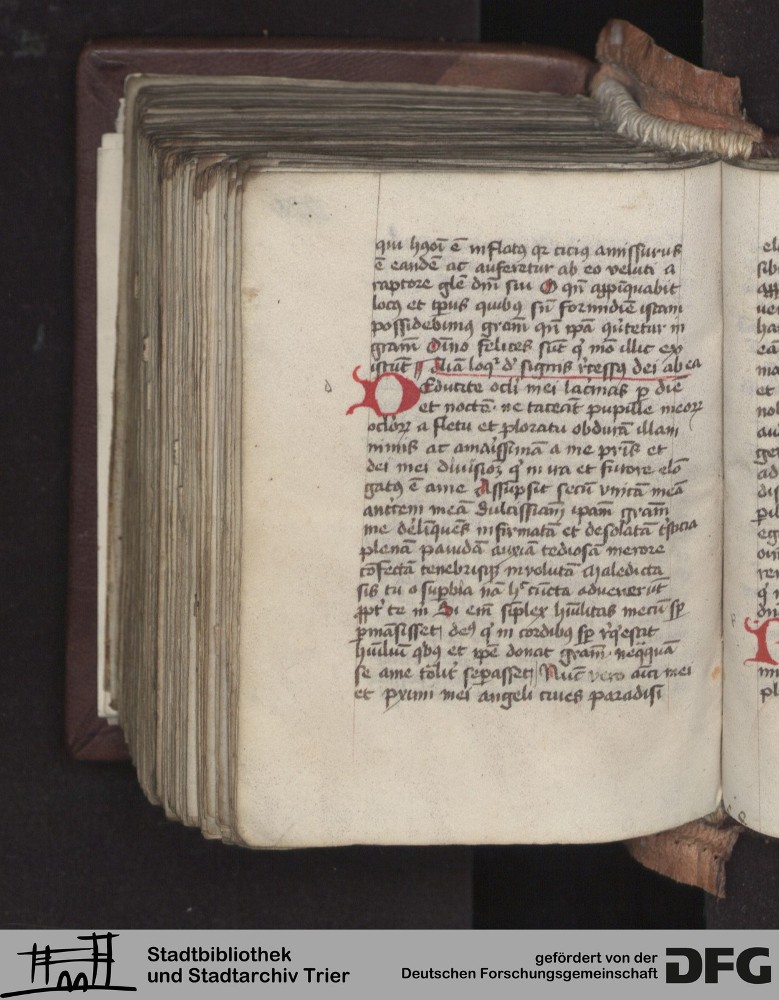 qui hmōi ē inflatꝰ qr cicius amissurus
ē eandē ac auferetur ab eo veluti a
raptore glē dn̄i sui O qn̄ appīquabit
locꝰ et tp̄us quibꝰ sn̄ formidīe istam
possidebimꝰ grām qn̄ ip̄a
grām Oīno felices sūt qͥ mō illic ex
istūt Aīa loqͥtur dͤ signis recessꝰ dei ab ea
d
DEducite ocli mei lacͥmas p die
et noctē ne taceāt pupille meoꝝ
ocloꝝ a fletu et ploratu obdurā illam
nimis ac amaͥssimā a me pͥris et
dei mei divisioꝫ qͥ in ira et furore elō
gatꝰ ē a me Assūpsit secū vnicā meā
auttem meā dulcissimam ipam grām
me delinquēs infirmatā et desolatā tͥsticia
plenā pauidā anxiā tediosā merore
cōfectā tenebrisqꝫ involutā Maledicta
sis tu o supbia nā hͨ cūcta aduenerūt
ppt te m Si em̄ simplex hūilitas mecū sp
pmāsisset deꝰ qͥ in cordibꝰ sp reqͥescit
hūiliū qͥbꝰ et ipē donat grām neqͣquā
se a me talit sepasset Nūc vero amici mei
et pximi mei angeli ciues paradisi
Stadtbibliothek
und Stadtarchiv Trier
gefördert von der
Deutschen Forschungsgemeinschaft
DFG